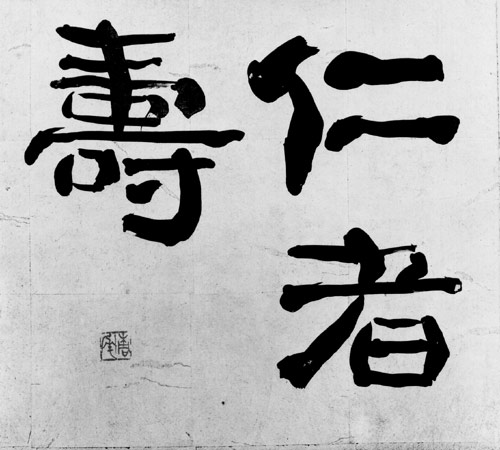 仁者
壽